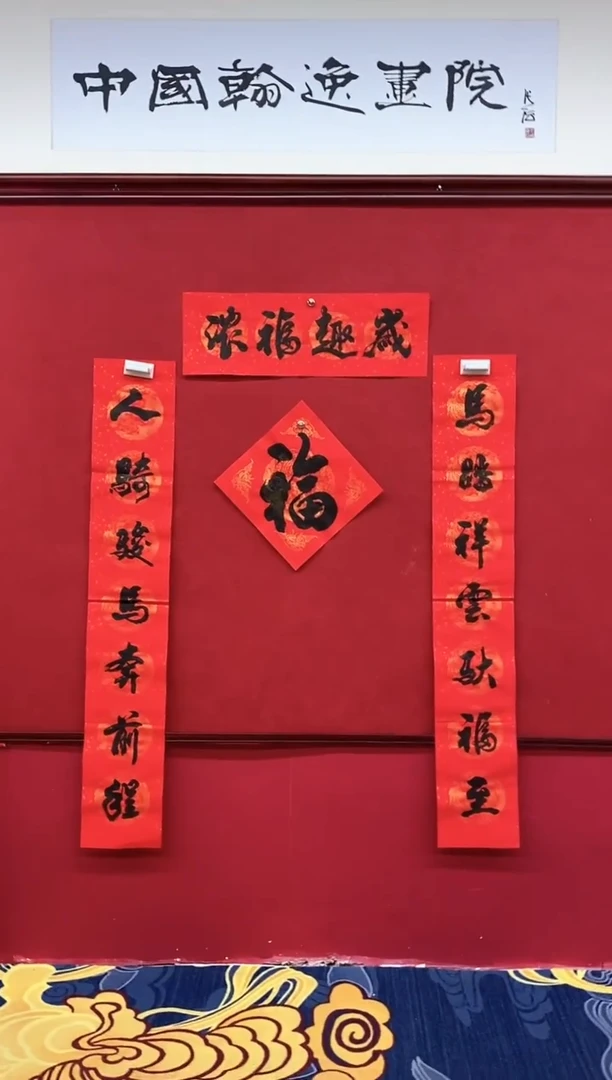 中國翰逸畫院
趣福浓
馬踏祥雲馱福至
人騎駿馬奔前程
福